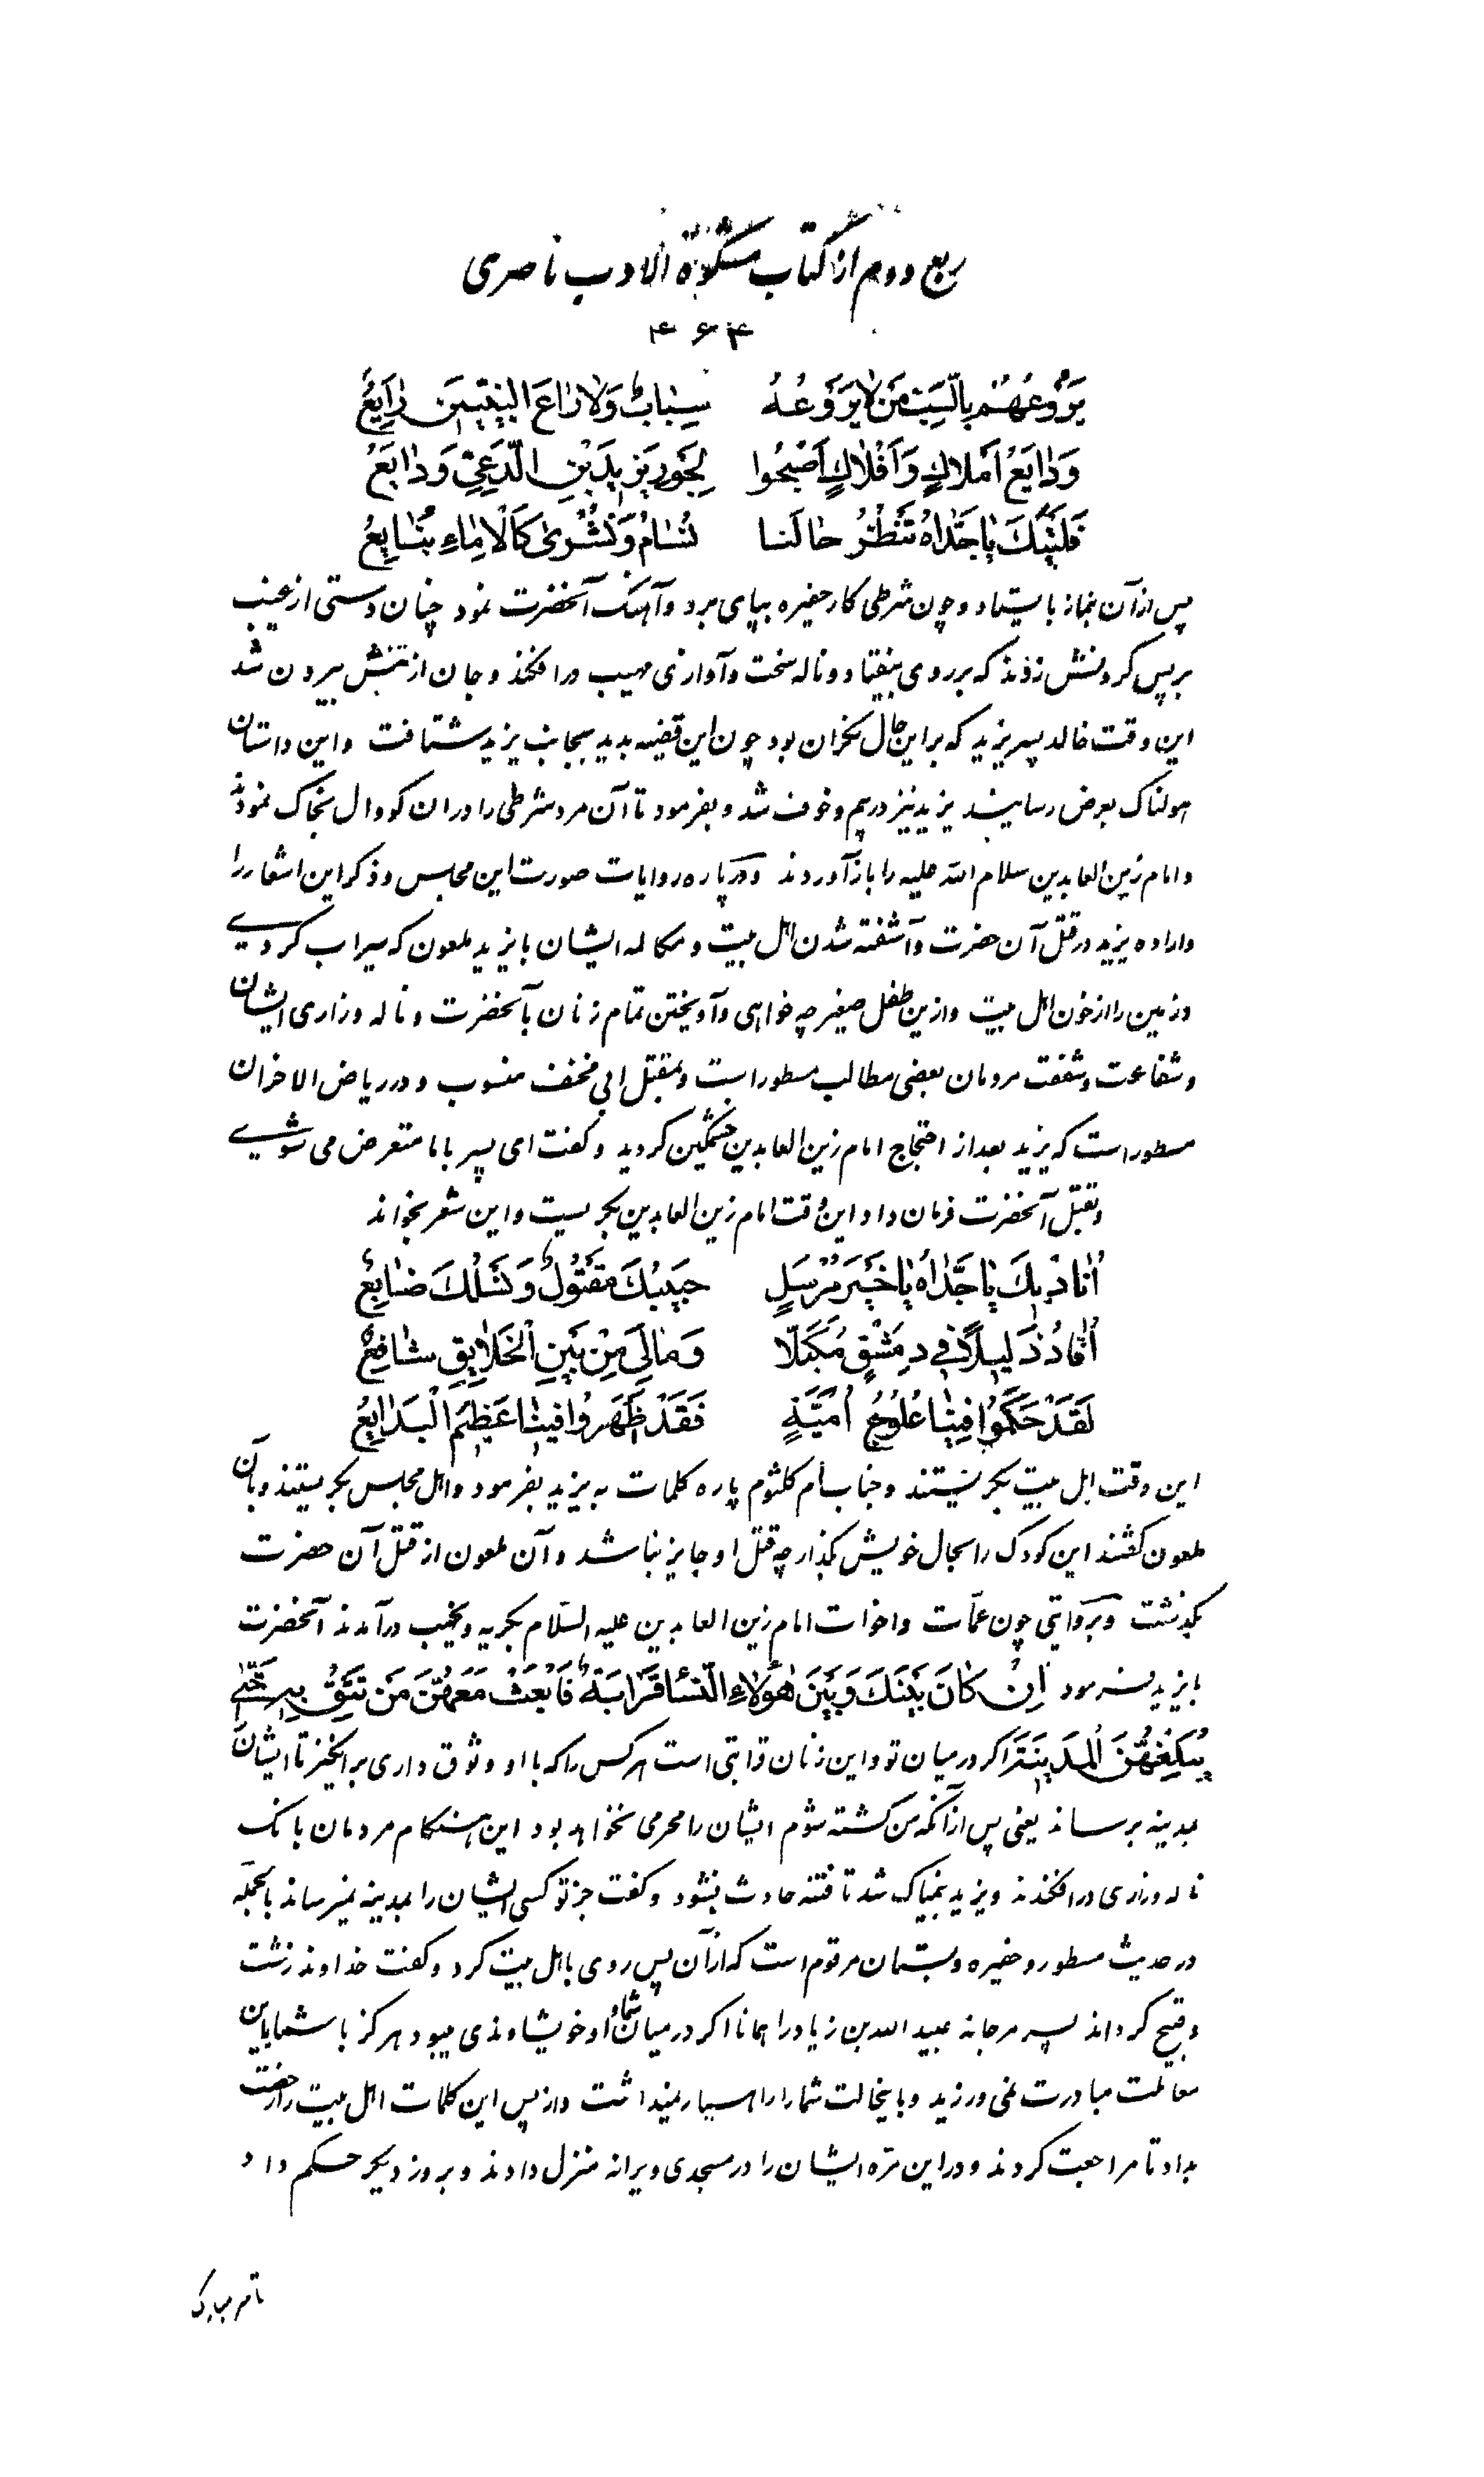 ربع دوم از کتاب مشکوة الادب ناصری
۴۶۴
يَرُوعُهُمْ بِالسَّبِّ مَنْ لا يَرُوعُهُ سِبابٌ وَلا راعَ النَّبِيِّينَ رايِعُ
وَدايَعُ اَملاكٍ وَاَفْلاكٍ اَصْبَحُوا لِجَورِ يَزيدِ بْنِ الدَّعِيِّ وَدايَعُ
فَلَيْتَكَ يا جَدّاهُ تَنْظُرُ حالَنا نُسامُ وَنُشْرى كَالْاِماءِ نُبايِعُ
پس از آن بنماز بایستاد و چون شرطی کار حفیره بپای برد و آهنک آنحضرت نمود چنان دستی از غیب
بر پس کردنش زدند که بر روی بیفتاد و ناله سخت و آوازی مهیب درافکند و جان از تنش بیرون شد
این وقت خالد پسر یزید که بر این حال نکران بود چون این قضیه بدید بجانب یزید شتافت و این داستان
هولناک بعرض رسانید یزید نیز در بیم و خوف شد و بفرمود تا آن مرد شرطی را در آن کودال بخاک نمودند
و امام زین العابدین سلام الله علیه را باز آوردند و در پاره روایات صورت این مجلس و ذکر این اشعار را
و اراده یزید در قتل آن حضرت و آشفته شدن اهل بیت و مکالمه ایشان با یزید ملعون که سیراب کردی
و زمین را از خون اهل بیت و از این طفل صغیر چه خواهی و آویختن تمام زنان بآنحضرت و ناله و زاری ایشان
و شفاعت و شفقت مردمان بعضی مطالب مسطور است و بمقتل ابی مخنف منسوب و در ریاض الاحزان
مسطور است که یزید بعد از احتجاج امام زین العابدین خشمکین کردید و کفت ای پسر با ما متعرض می شوی
و بقتل آنحضرت فرمان داد این وقت امام زین العابدین بکریست و این شعر بخواند
اُناديكَ يا جَدّاهُ يا خَيْرَ مُرْسَلٍ حَبيبُكَ مَقْتُولٌ وَنَسْلُكَ ضايِعٌ
اُقادُ ذَليلاً في دِمَشْقٍ مُكَبَّلاً وَمالِيَ مِنْ بَيْنِ الْخَلايِقِ شافِعٌ
لَقَدْ حَكَمُوا فينا عُلُوجُ اُمَيَّةٍ فَقَدْ ظَهَرُوا فينا عَظيمَ الْبَدايِعُ
این وقت اهل بیت بکریستند و جناب ام کلثوم پاره کلمات به یزید بفرمود و اهل مجلس بکریستند و بآن
ملعون کفتند این کودک را بحال خویش بکذار چه قتل او جایز نباشد و آن ملعون از قتل آن حضرت
بکذشت و بروایتی چون عمات و اخوات امام زین العابدین علیه السلام بکریه و نحیب درآمدند آنحضرت
با یزید فرمود اِنْ كانَ بَيْنَكَ وَبَيْنَ هؤُلاءِ النِّساءِ قَرابَةٌ فَابْعَثْ مَعَهُنَّ مَنْ تَثِقُ بِهِ حَتّى
يُبَلِّغَهُنَّ الْمَدينَةَ اکر در میان تو و این زنان قرابتی است هر کس را که با او وثوق داری برانکیز تا ایشان
بمدینه برساند یعنی پس از آنکه من کشته شوم ایشان را محرمی نخواهد بود این هنکام مردمان بانک
ناله و زاری درافکندند و یزید بیمناک شد تا فتنه حادث نشود و کفت جز تو کسی ایشان را بمدینه نمیرساند بالجمله
در حدیث مسطور و حفیره و بستان مرقوم است که از آن پس روی با اهل بیت کرد و کفت خداوند زشت
و قبیح کرداند پسر مرجانه عبید الله بن زیاد را همانا اکر در میان شما و او خویشاوندی میبود هرکز با شما باین
معاملت مبادرت نمی ورزید و باینحالت شما را رهسپار نمیداشت و از پس این کلمات اهل بیت را رخصت
بداد تا مراجعت کردند و در این کره ایشان را در مسجدی ویرانه منزل دادند و بروز دیکر حکم داد
تا سر مبارک